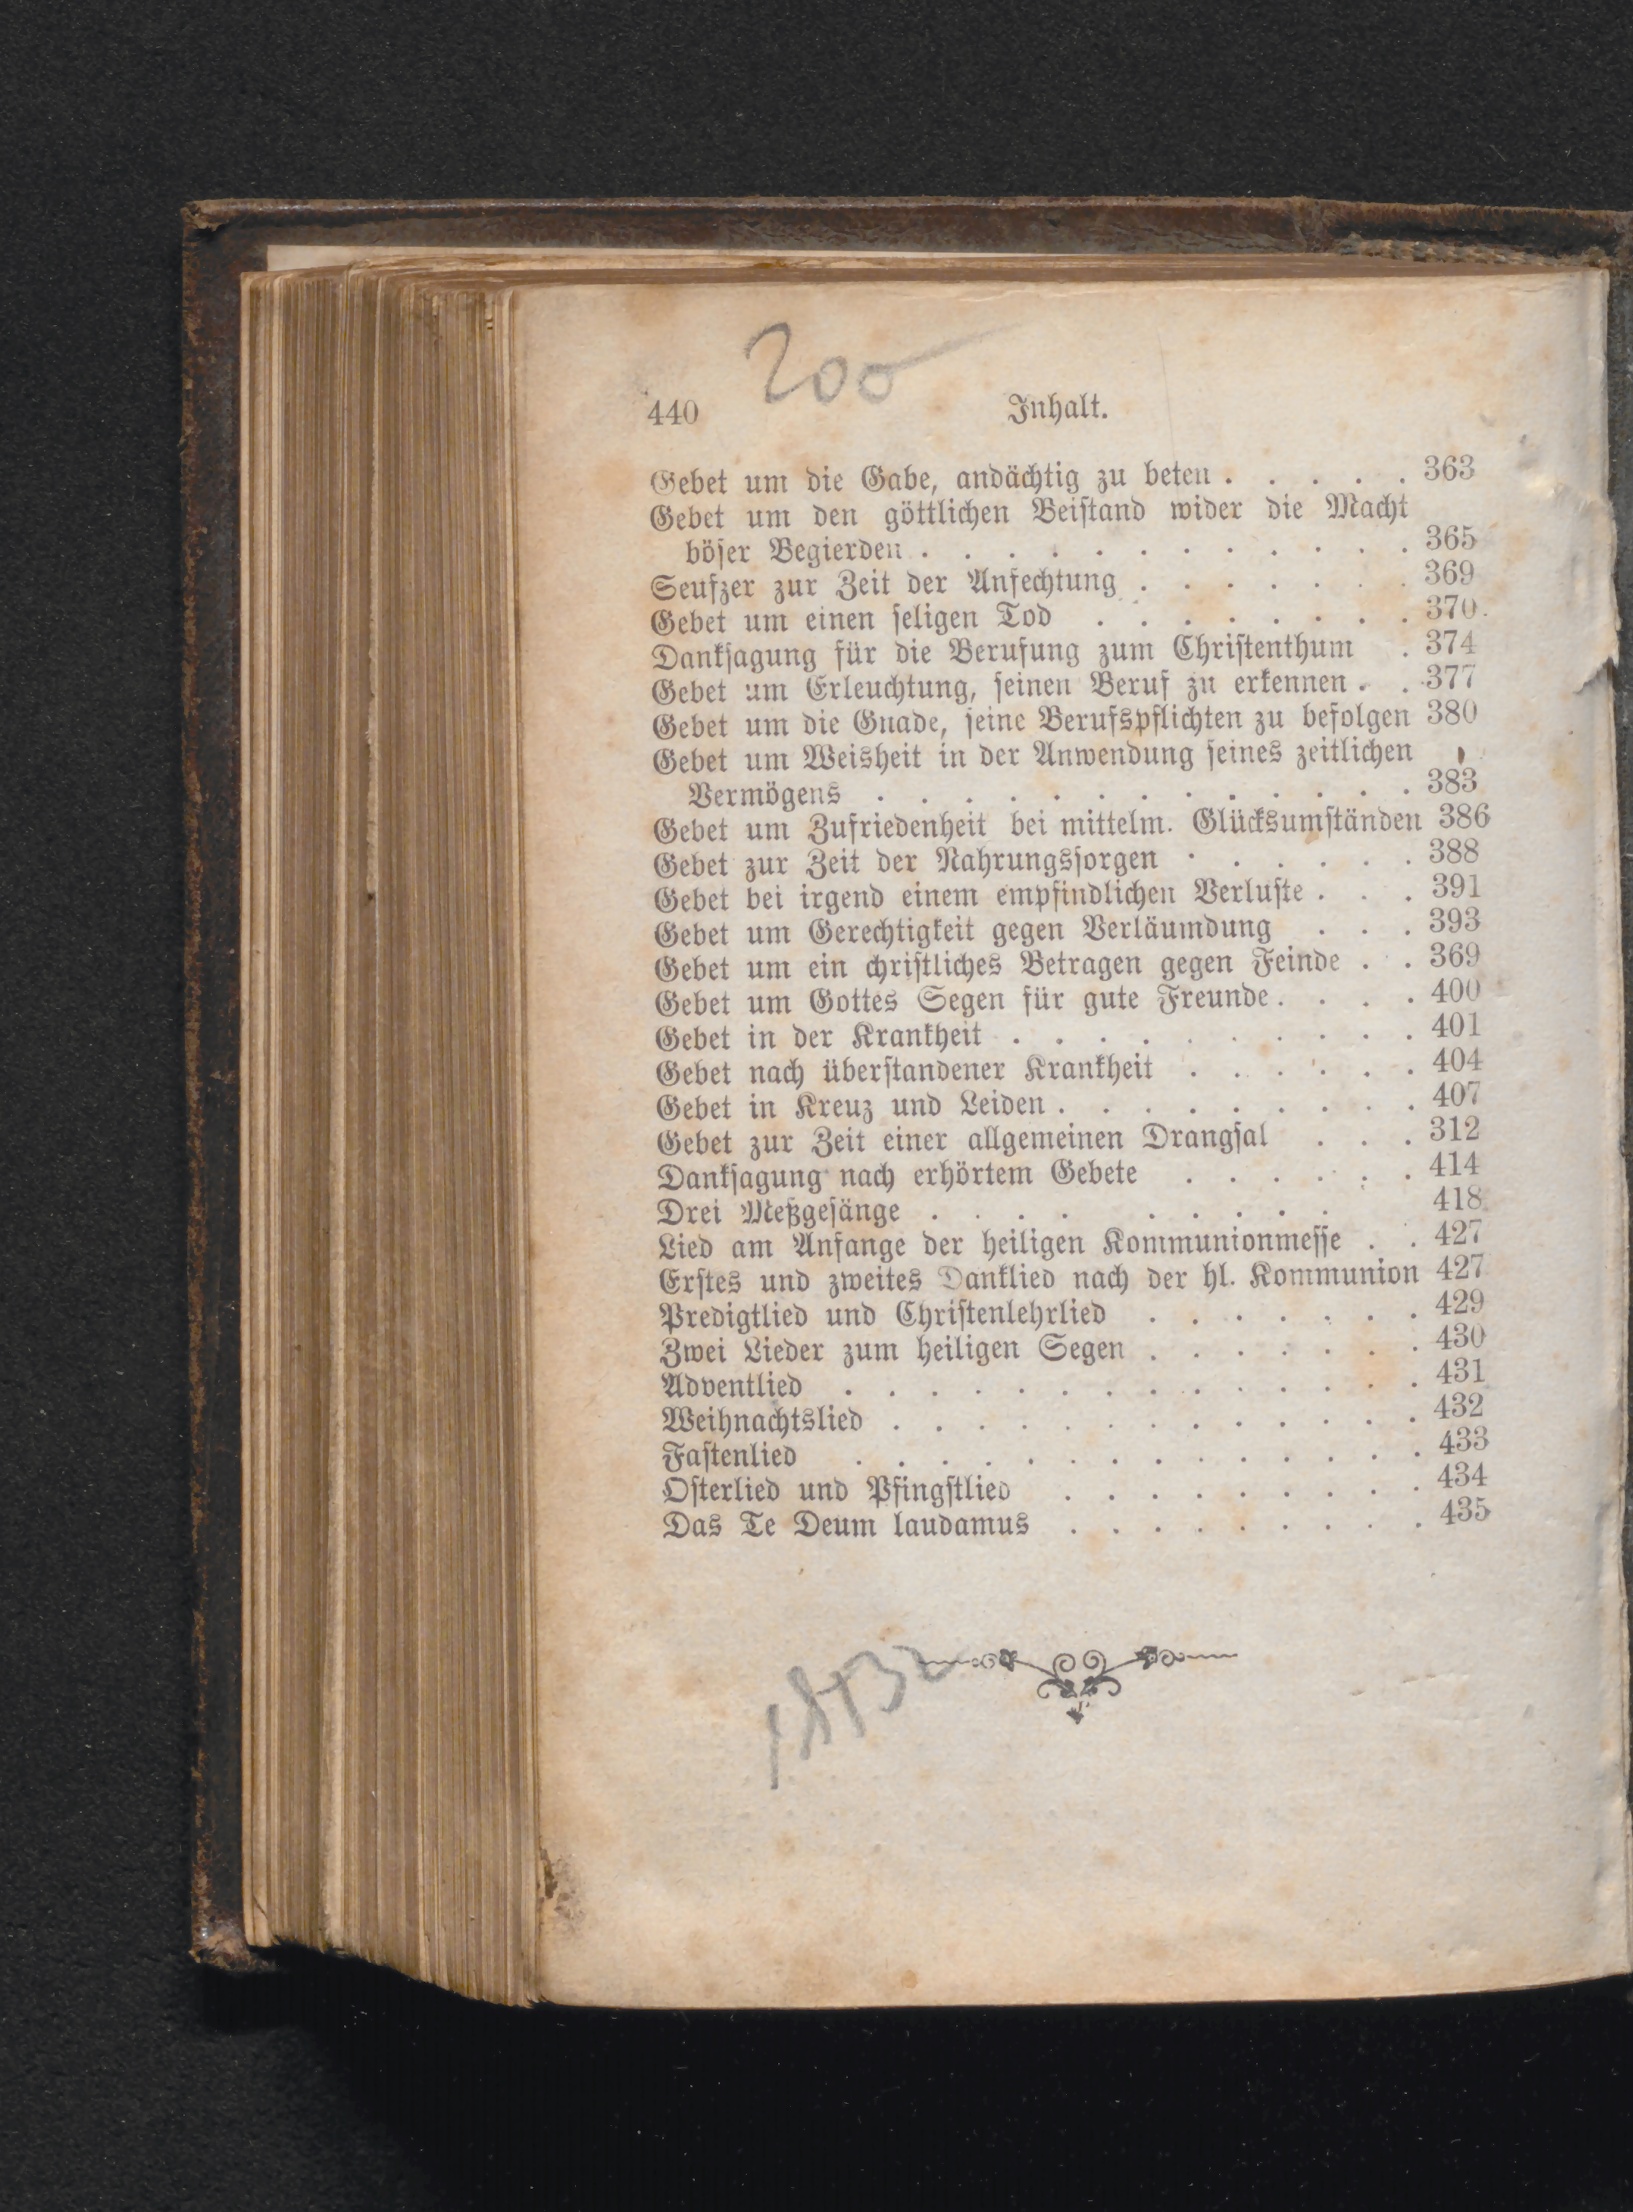 200
440 Inhalt.
Gebet um die Gabe, andächtig zu beten . . . . . 363
Gebet um den göttlichen Beiſtand wider die Macht
böſer Begierden . . . . . . . . . . . . 365
Seufzer zur Zeit der Anfechtung . . . . . . . 369
Gebet um einen ſeligen Tod . . . . . . . . 370
Dankſagung für die Berufung zum Chriſtenthum . 374
Gebet um Erleuchtung, ſeinen Beruf zu erkennen . . 377
Gebet um die Gnade, ſeine Berufspflichten zu befolgen 380
Gebet um Weisheit in der Anwendung ſeines zeitlichen
Vermögens . . . . . . . . . . . . . 383
Gebet um Zufriedenheit bei mittelm. Glücksumſtänden 386
Gebet zur Zeit der Nahrungsſorgen . . . . . . 388
Gebet bei irgend einem empfindlichen Verluſte . . . 391
Gebet um Gerechtigkeit gegen Verläumdung . . . 393
Gebet um ein chriſtliches Betragen gegen Feinde . . 369
Gebet um Gottes Segen für gute Freunde . . . . 400
Gebet in der Krankheit . . . . . . . . . . 401
Gebet nach überſtandener Krankheit . . . . . . 404
Gebet in Kreuz und Leiden . . . . . . . . . 407
Gebet zur Zeit einer allgemeinen Drangſal . . . 312
Dankſagung nach erhörtem Gebete . . . . . . 414
Drei Meßgeſänge . . . . . . . . . 418
Lied am Anfange der heiligen Kommunionmeſſe . . 427
Erſtes und zweites Danklied nach der hl. Kommunion 427
Predigtlied und Chriſtenlehrlied . . . . . . . 429
Zwei Lieder zum heiligen Segen . . . . . . . 430
Adventlied . . . . . . . . . . . . . . 431
Weihnachtslied . . . . . . . . . . . . . 432
Faſtenlied . . . . . . . . . . . . . . 433
Oſterlied und Pfingſtlied . . . . . . . . . 434
Das Te Deum laudamus . . . . . . . . . 435